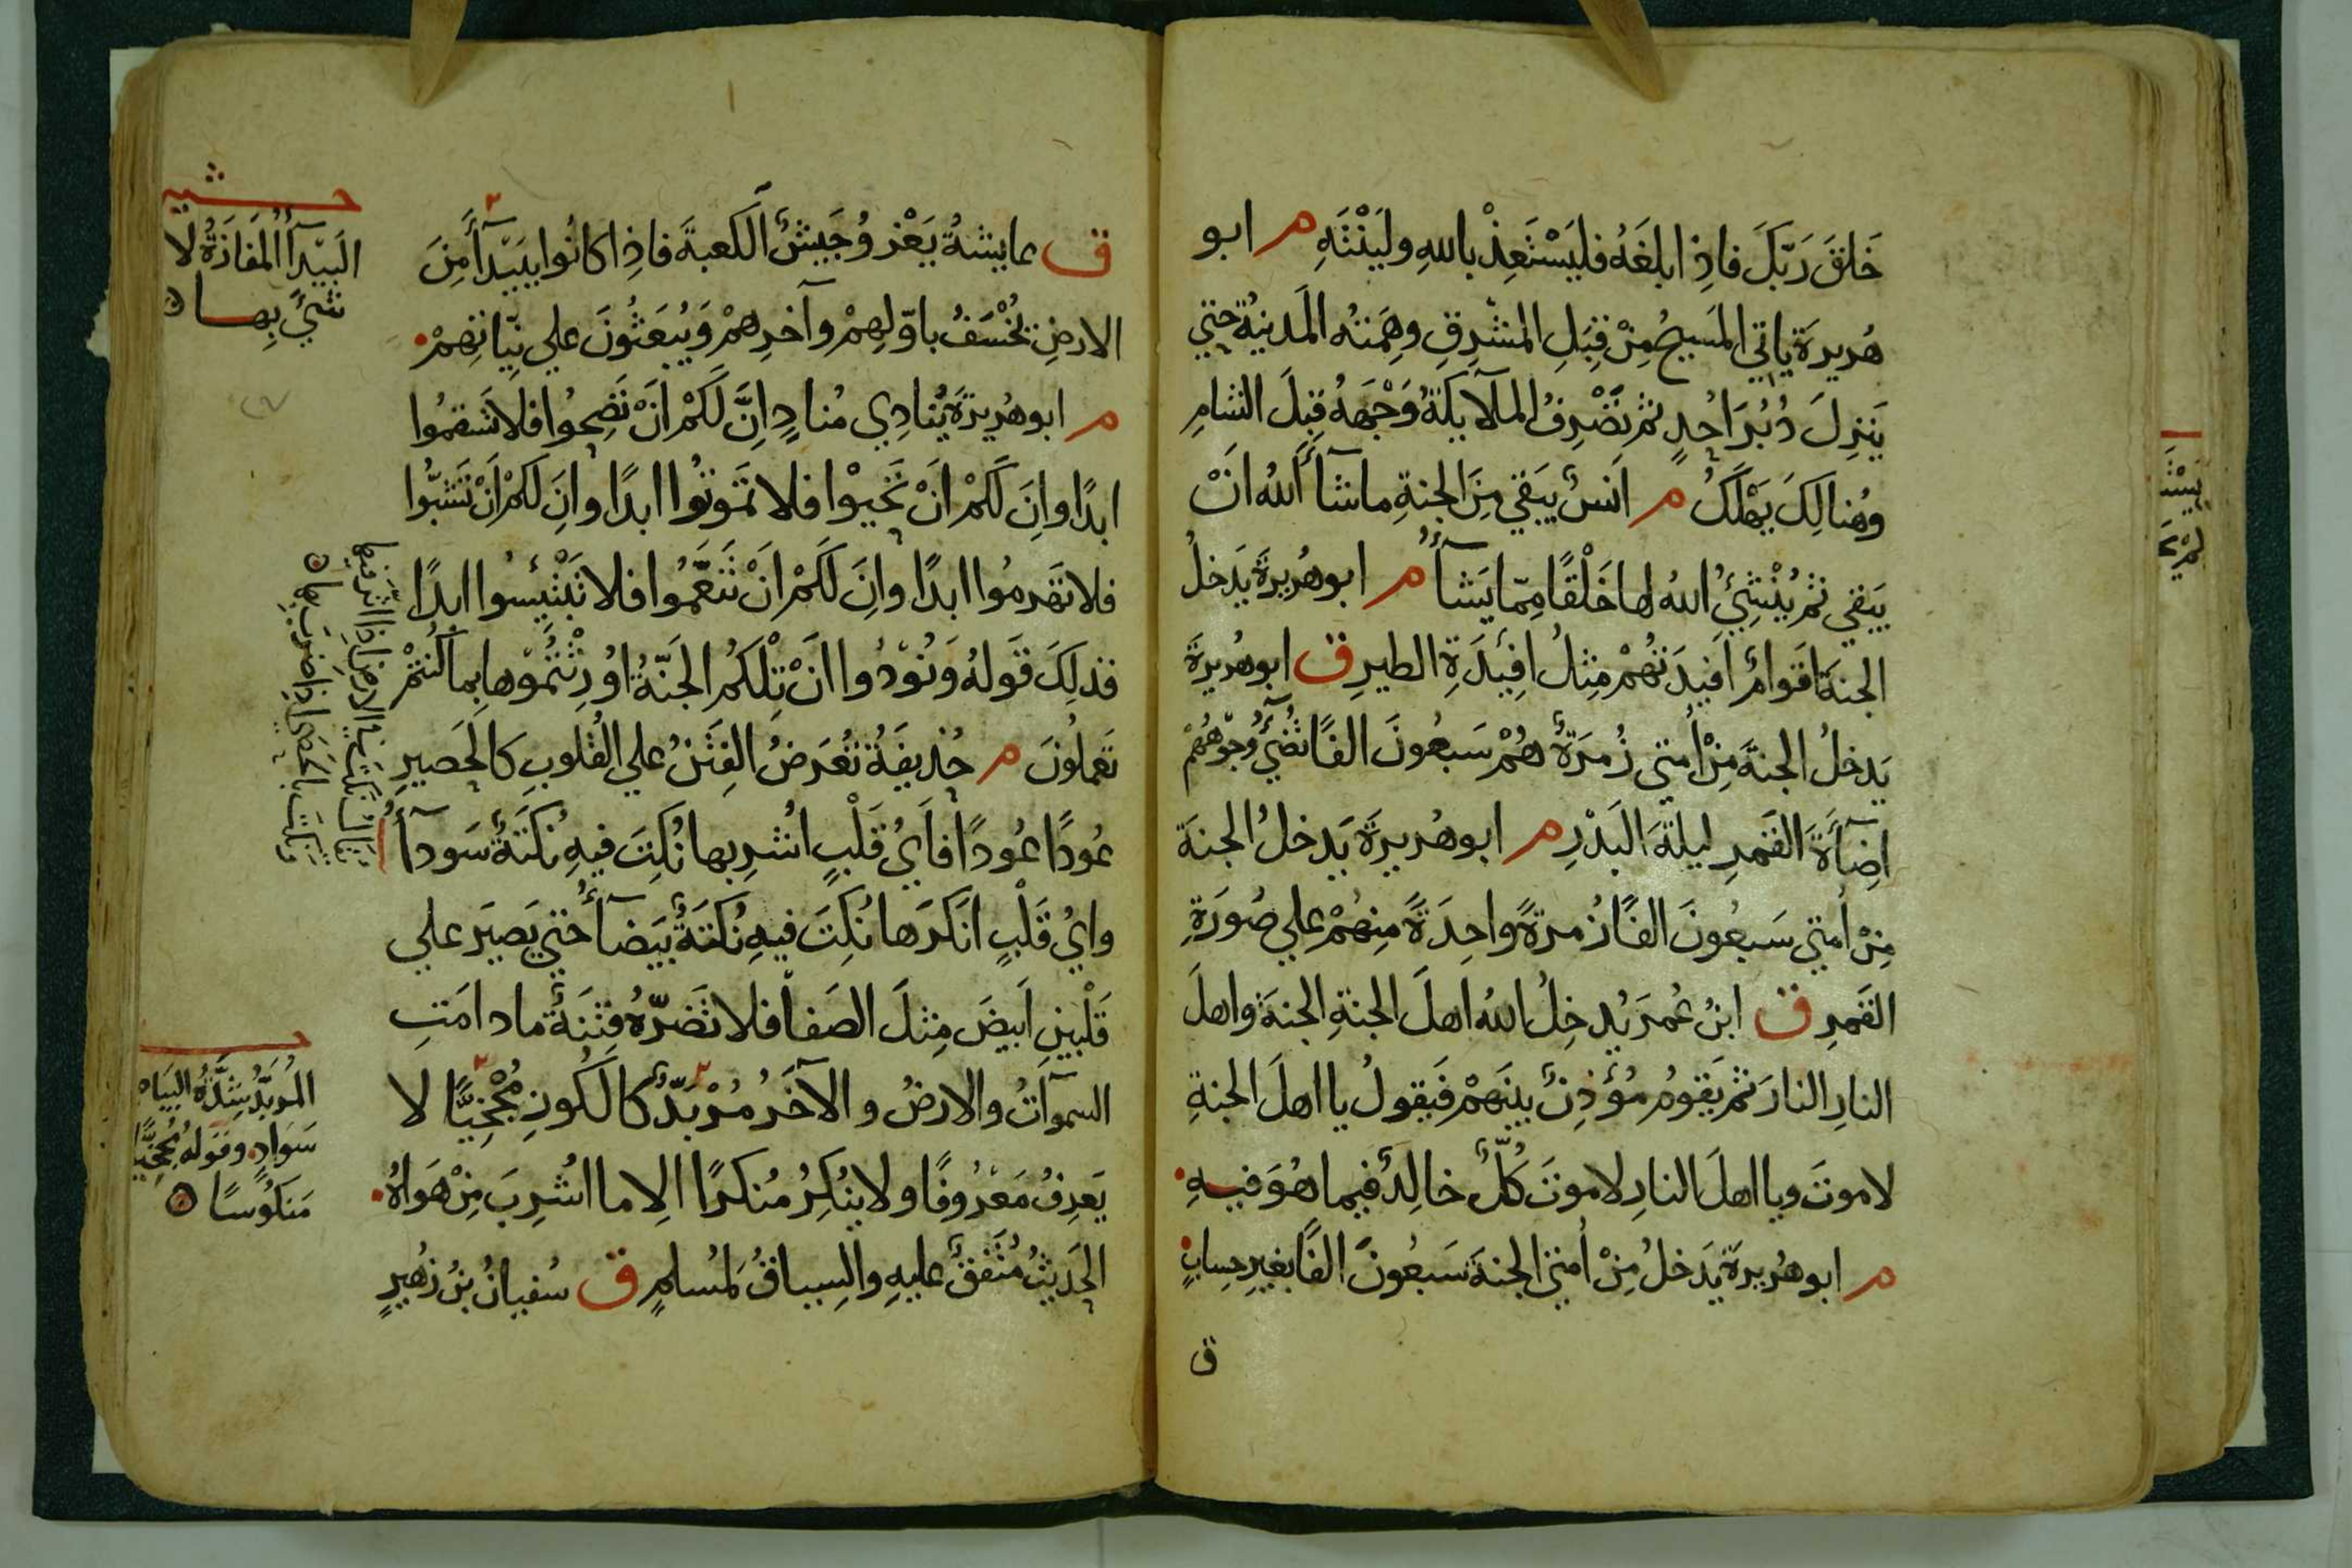 خَلَقَ رَبّكَ فاذِا بلغَهُ فليَسْتَعِذْ باللهِ وليَنْتَهِ م ابو
هُريرةَ ياتي المَسيحُ مِنْ قِبَلِ المشرِقِ وهِمَتُه المَدينةُ حتي
يَنزِلَ دُبُرَ اُحُدٍ ثم تَصْرِفُ الملآيكةُ وَجْهَهُ قِبَلَ الشامِ
وهُنالِكَ يَهْلَكُ م اَنسٌ يَبَقي مِنَ الجنةِ ماشآأَللهُ اَنْ
يَبَقي ثم يُنْشِئُ اللهُ لها خَلْقًا مِمّا يَشَآأُ م ابو هُريرةَ يَدخلُ
الجنةَ اقَوامٌ اَفيِدَتهُمْ مِثلُ افِيِدَةِ الطيرِ ق ابو هُريرةَ
يَدخلُ الجنةَ مِنْ اُمتي زُمرَةٌ هُمْ سَبعُونَ الفًا تُضِئُ وُجوَهُهُمْ
اِضآأَةَ القَمرِ ليلةَ البَدْرِ م ابو هُريرةَ يَدخلُ الجنةَ
مِنْ اُمتي سَبعُونَ الفًا زُمرةً واحِدَةً مِنهُمْ علي صُورَةِ
القَمرِ ق ابنُ عُمرَ يُدخِلُ اللهُ اهلَ الجنةِ الجنةَ واهلَ
النارِ النارَ ثم يَقومُ مُؤذِنٌ بينَهمْ فَيقولُ يا اهلَ الجنةِ
لا موتَ ويا اهلَ النارِ لا موتَ كُلٌّ خالِدٌ فيما هُوَ فيهِ
م ابو هُريرةَ يَدخلُ مِنْ اُمتي الجنةَ سَبعُونَ الفًا بغيرِ حِسابٍ
ق
ق عايشةُ يَغْزوُ جَيشٌ الكعبةَ فاذِا كانُوا ببَيدآأَ مِنَ
الارضِ يُخْسَفُ باوّلِهِمْ وآخرِهمْ وَيُبعَثُونَ علي نِيّاتهِمْ
م ابو هُريرةَ يُنادِي مُنادٍ اِنَّ لَكمْ اَنْ تَصِحوُا فلا تَسْقَمُوا
ابدًا واِنَ لَكمْ اَنْ تَحْيوْا فلا تَموتُوا ابدًا واِنَ لَكمْ اَنْ تَشبّوُا
فلا تَهرمُوا ابدًا واِنَ لَكمْ اَنْ تَنَعَّموُا فلا تَبْتَيِسُوا ابدًا
فذلِكَ قَولهُ وَنُوْدُوا انَ تِلْكُمُ الجَنّةُ اوُرِثْتُموُها بِما كُنتُمْ
تَعملُونَ م حُذيفَةُ تُعرَضُ الفِتَنُ علي القُلوبِ كالحَصيرِ
عُودًا عُودًا فاَيُ قَلْبٍ اُشرِبها نُكِتَ فيهِ نُكتَةٌ سَودآأُ
وايُ قَلْبٍ انَكَرَها نُكِتَ فيهِ نُكتَةٌ بَيضآأُ حتي يَصيَر علي
قَلْبينِ اَبيضَ مِثلَ الصَفا فلا تَضرّهُ فِتنَةٌ ما دامَتِ
السمواتُ والارضُ والآخَرُ مُرْبدٌّ كالكُوزِ مُجْخِيًّا لا
يَعرِفُ مَعْرُوفًا ولا يُنكِرُ مُنكرًا الِا ما اُشرِبَ مِنْ هَواهُ
الحَديثُ مُتفِقٌ عليهِ والسِياقُ لمُسلمٍ ق سُفيانُ بنُ زُهيرٍ
حـــشـــ
البَيْدآأُ المَفَازَةُ لا
شئَ بِهـا
يقال نكت في الارض اذا اثر فيها
ونكت بالحصي اذا ضرب بها
المُربَّدُ شِدَّةُ البَيَاض
سَوَادٍ وقَولهُ مُجْخِيًّا
مَنكوُسًا